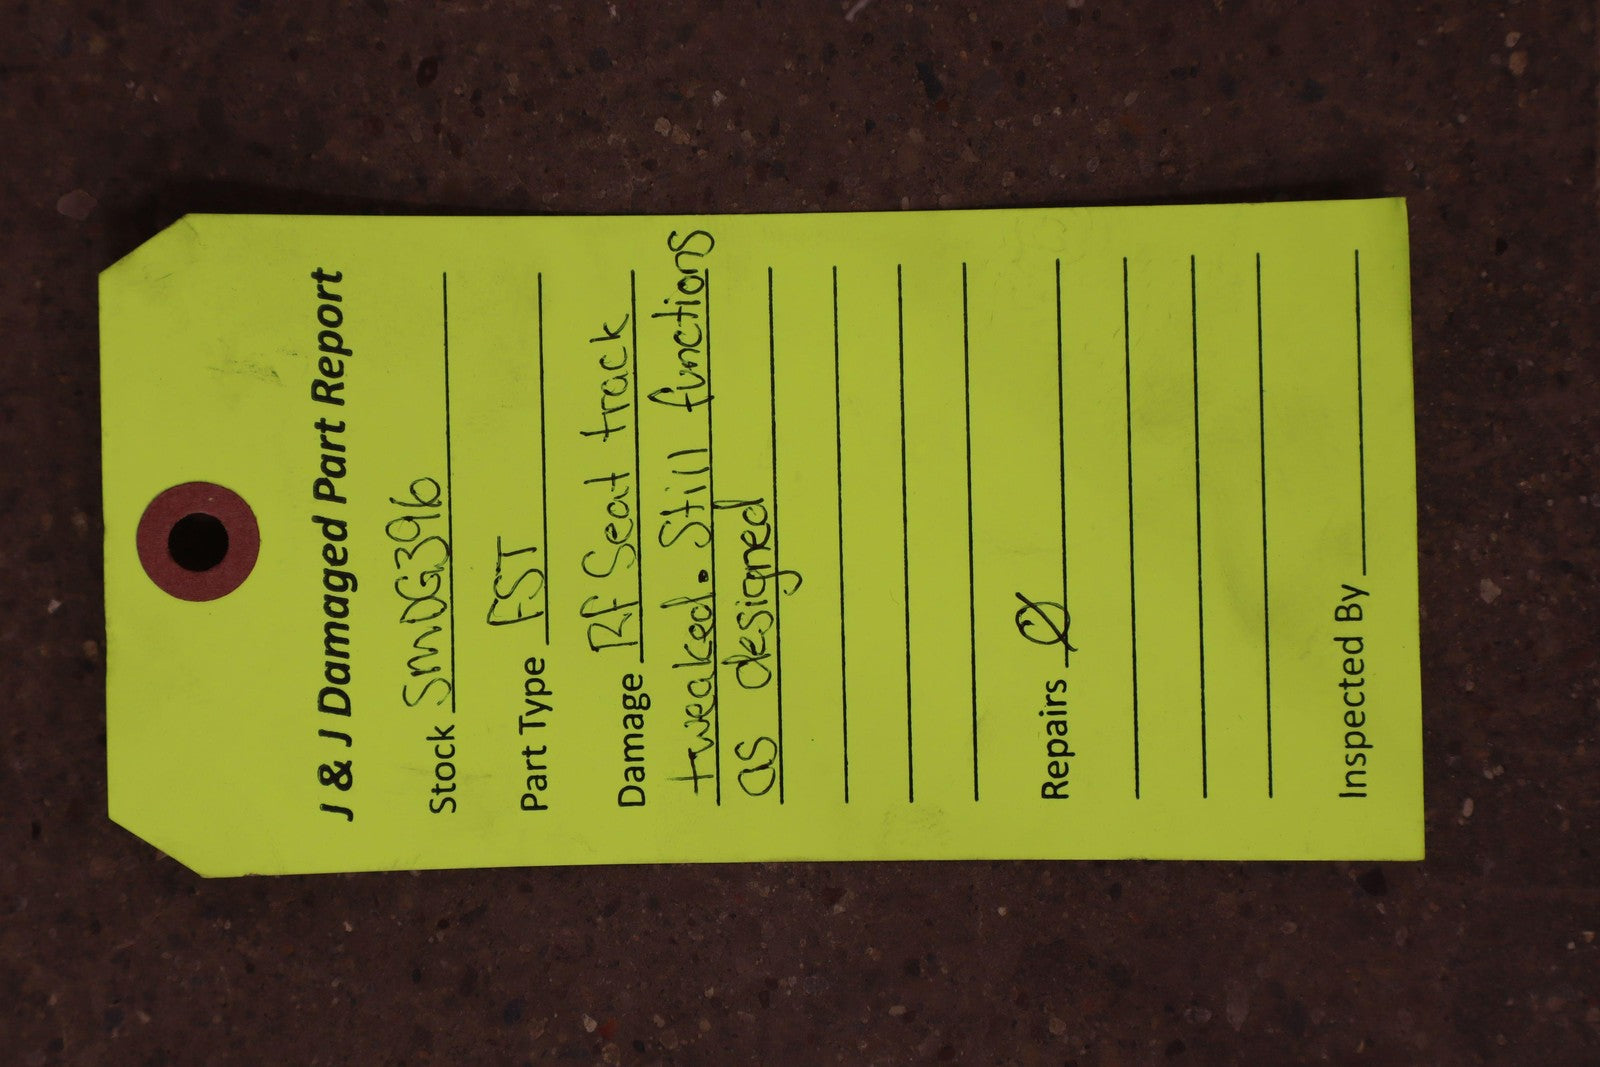 J & J Damaged Part Report
Stock SmDG396
Part Type FST
Damage Rf Seat track
tweaked. Still functions
as designed
Repairs Ø
Inspected By